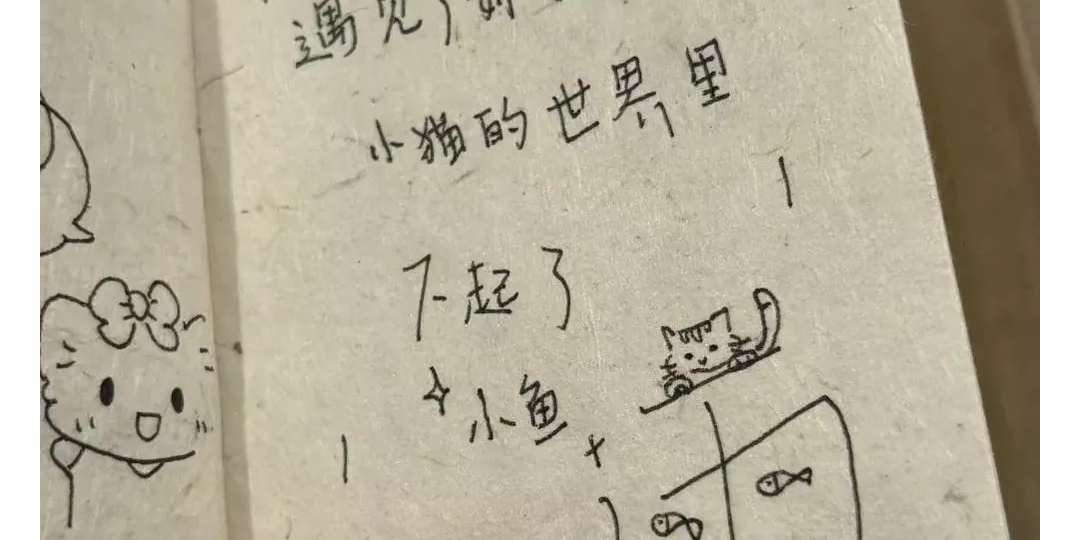 遇见了
小猫的世界里
下起了
小鱼